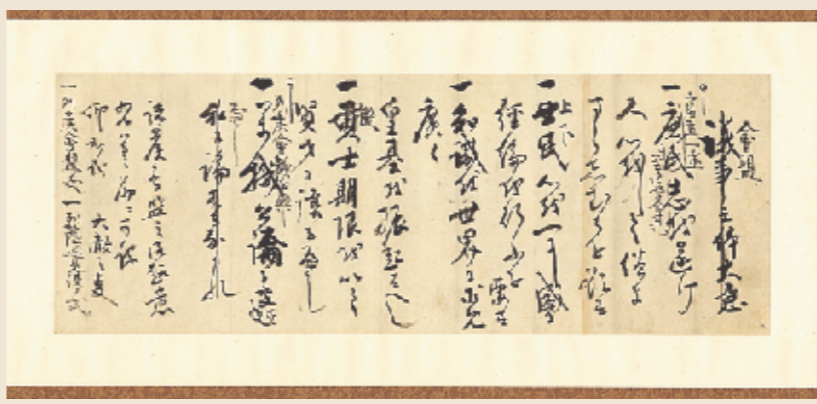 会盟
議事之体大意
官武一途
一庶民志を遂け
人心をして倦ま
さらしむるを欲す
上下
一士民心を一にし盛に
経綸を行ふを要す
一知識を世界に求め
広く
皇基を振起すへし
一貢士期限を以て
賢才に譲るへし
列侯会議を興し
一万機公論に決し
私に論するなかれ
諸侯会盟之御趣意
右等之筋に可被
仰出哉 大赦之事
一列侯会盟式 一列藩巡見使ノ式